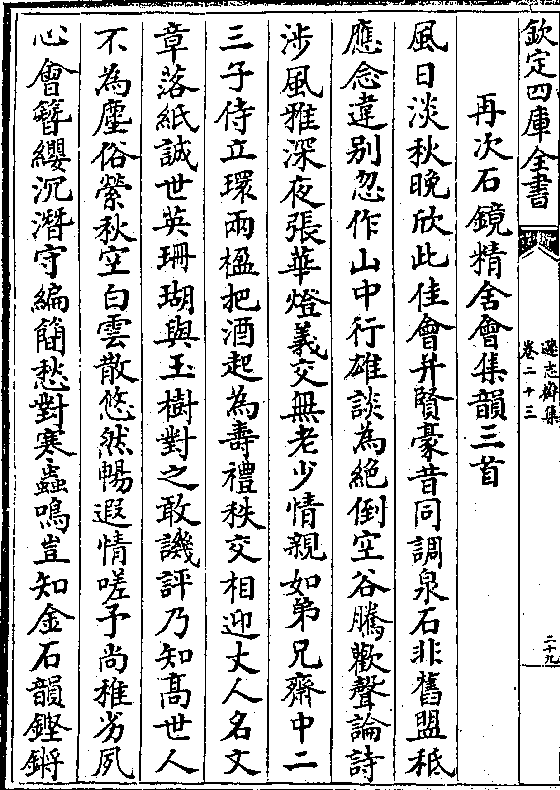 欽定四庫全書
遜志齋集
卷二十三
二十九
再次石鏡精舍會集韻三首
風日淡秋晚欣此佳會并賢豪昔同調泉石非舊盟秪
應念違别忽作山中行雄談為絶倒空谷騰歡聲論詩
涉風雅深夜張華燈義交無老少情親如弟兄齋中二
三子侍立環兩楹把酒起為壽禮秩交相迎丈人名文
章落紙誠世英珊瑚與玉樹對之敢譏評乃知髙世人
不為塵俗縈秋空白雲散悠然暢遐情嗟予尚稚劣夙
心會簪纓沉潛守編簡愁對寒蟲鳴豈知金石韻鏗鏘